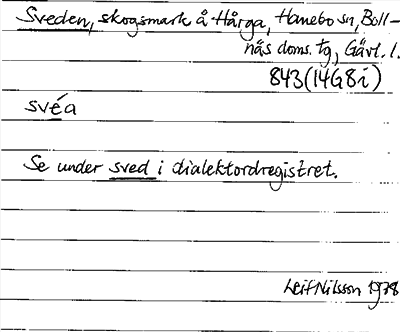 Sveden, skogsmark å Hårga, Hanebo sn, Boll-
näs doms. tg, Gävl. l.
843 (14G8i)
svéa
Se under sved i dialektordregistret.
Leif Nilsson 1978